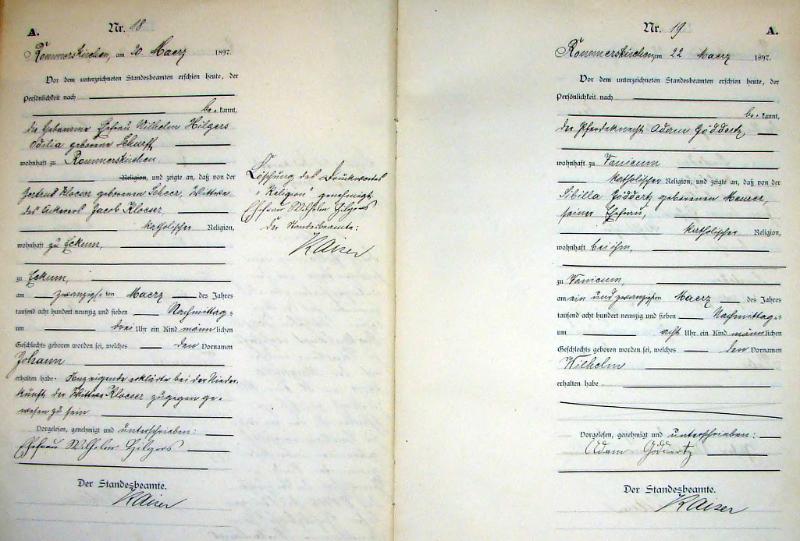 A.
Nr. 18
Rommerskirchen, am 20 Maerz 1897.
Vor dem unterzeichneten Standesbeamten erschien heute, der
Persönlichkeit nach
be kannt,
die Hebamme Ehefrau Wilhelm Hilgers
geborene
wohnhaft zu Rommerskirchen
Religion, und zeigte an, daß von der
geborenen Scheer, Wittwe
des Ackerers Jacob Kloeser
katholischer Religion,
wohnhaft zu Eckum,
zu Eckum,
am zwanzigsten Maerz des Jahres
tausend acht hundert neunzig und sieben Nachmittags
um drei Uhr ein Kind männlichen
Geschlechts geboren worden sei, welches den Vornamen
Johann
erhalten habe. Anzeigende erklärte bei der Nieder-
kunft der Wittwe Kloeser zugegen ge-
wesen zu sein
Vorgelesen, genehmigt und unterschrieben:
Ehefrau Wilhelm Hilgers
Der Standesbeamte.
Kaiser
Löschung des Druckwortes
"Religion" genehmigt
Ehefrau Wilhelm Hilgers
Der Standesbeamte:
Kaiser
Nr. 19
A.
Rommerskirchen, am 22 Maerz 1897.
Vor dem unterzeichneten Standesbeamten erschien heute, der
Persönlichkeit nach
be kannt,
der Pferdeknecht Adam Göddertz
wohnhaft zu Vanicum
katholischer Religion, und zeigte an, daß von der
Sibilla Göddertz geborenen Meurer,
seiner Ehefrau,
katholischer Religion,
wohnhaft bei ihm,
zu Vanicum,
am ein und zwanzigsten Maerz des Jahres
tausend acht hundert neunzig und sieben Nachmittags
um acht Uhr ein Kind männlichen
Geschlechts geboren worden sei, welches den Vornamen
Wilhelm
erhalten habe
Vorgelesen, genehmigt und unterschrieben:
Adam Göddertz
Der Standesbeamte.
Kaiser